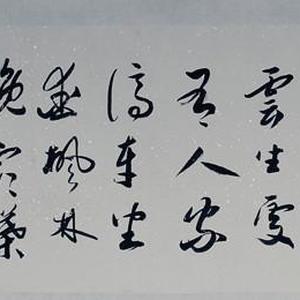 雲生處
有人家
停車坐
愛楓林
晚霜葉